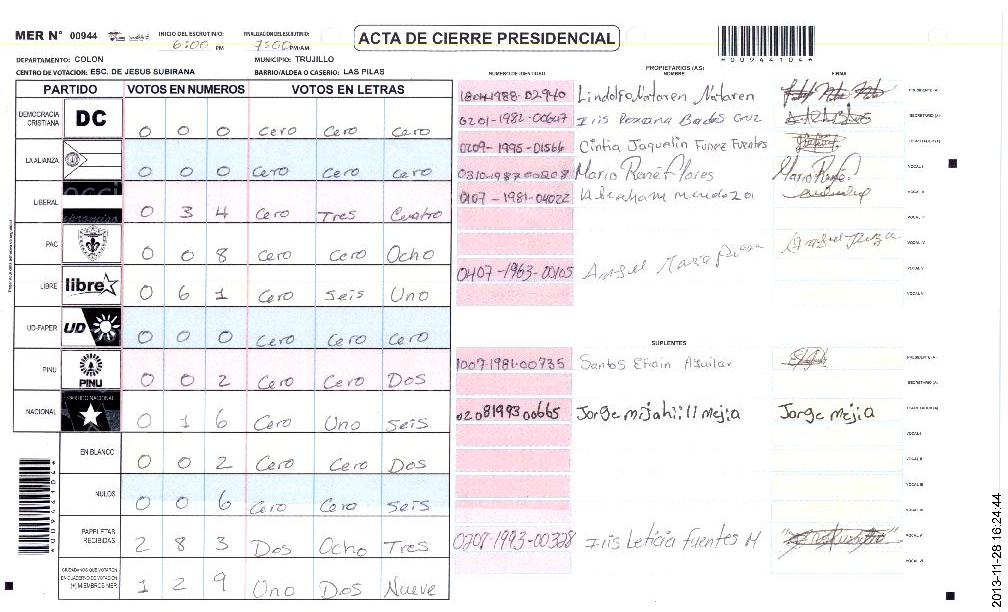 MER N° 00944 INICIO DEL ESCRUTINIO: 6:00 PM FINALIZACION DEL ESCRUTINIO: 7:00 PM/AM
ACTA DE CIERRE PRESIDENCIAL
*00944104*
DEPARTAMENTO: COLON MUNICIPIO: TRUJILLO
CENTRO DE VOTACION: ESC. DE JESUS SUBIRANA BARRIO/ALDEA O CASERIO: LAS PILAS
PARTIDO VOTOS EN NUMEROS VOTOS EN LETRAS
DEMOCRACIA CRISTIANA DC 0 0 0 Cero Cero Cero
LA ALIANZA 0 0 0 Cero Cero Cero
LIBERAL 0 3 4 Cero Tres Cuatro
PAC 0 0 8 Cero Cero Ocho
LIBRE libre 0 6 1 Cero Seis Uno
UD-FAPER UD 0 0 0 Cero Cero Cero
PINU PINU 0 0 2 Cero Cero Dos
NACIONAL PARTIDO NACIONAL 0 1 6 Cero Uno Seis
EN BLANCO 0 0 2 Cero Cero Dos
NULOS 0 0 6 Cero Cero Seis
PAPELETAS RECIBIDAS 2 8 3 Dos Ocho Tres
CIUDADANOS QUE VOTARON EN CUADERNO DE VOTACION (+) MIEMBROS MER 1 2 9 Uno Dos Nueve
*00944104*
PROPIETARIOS (AS)
NUMERO DE IDENTIDAD NOMBRE FIRMA
1804-1988-02940 Lindolfo Mataren Mataren PRESIDENTE (A)
0201-1982-00647 Iris SECRETARIO (A)
0209-1995-01566 Cintia Jaquelin Funez Fuentes ESCRUTADOR (A)
0310-1987-00208 Mario René Flores Mario René. VOCAL I
0107-1981-04022 VOCAL II
VOCAL III
VOCAL IV
0407-1963-00105 VOCAL V
VOCAL VI
SUPLENTES
1007-1981-00735 Santos Efrain Aguilar PRESIDENTE (A)
SECRETARIO (A)
0208199300665 Jorge Mejia Jorge Mejia ESCRUTADOR (A)
VOCAL I
VOCAL II
VOCAL III
VOCAL IV
0207-1993-00328 Iris Leticia Fuentes M VOCAL V
VOCAL VI
2013-11-28 16:24:44